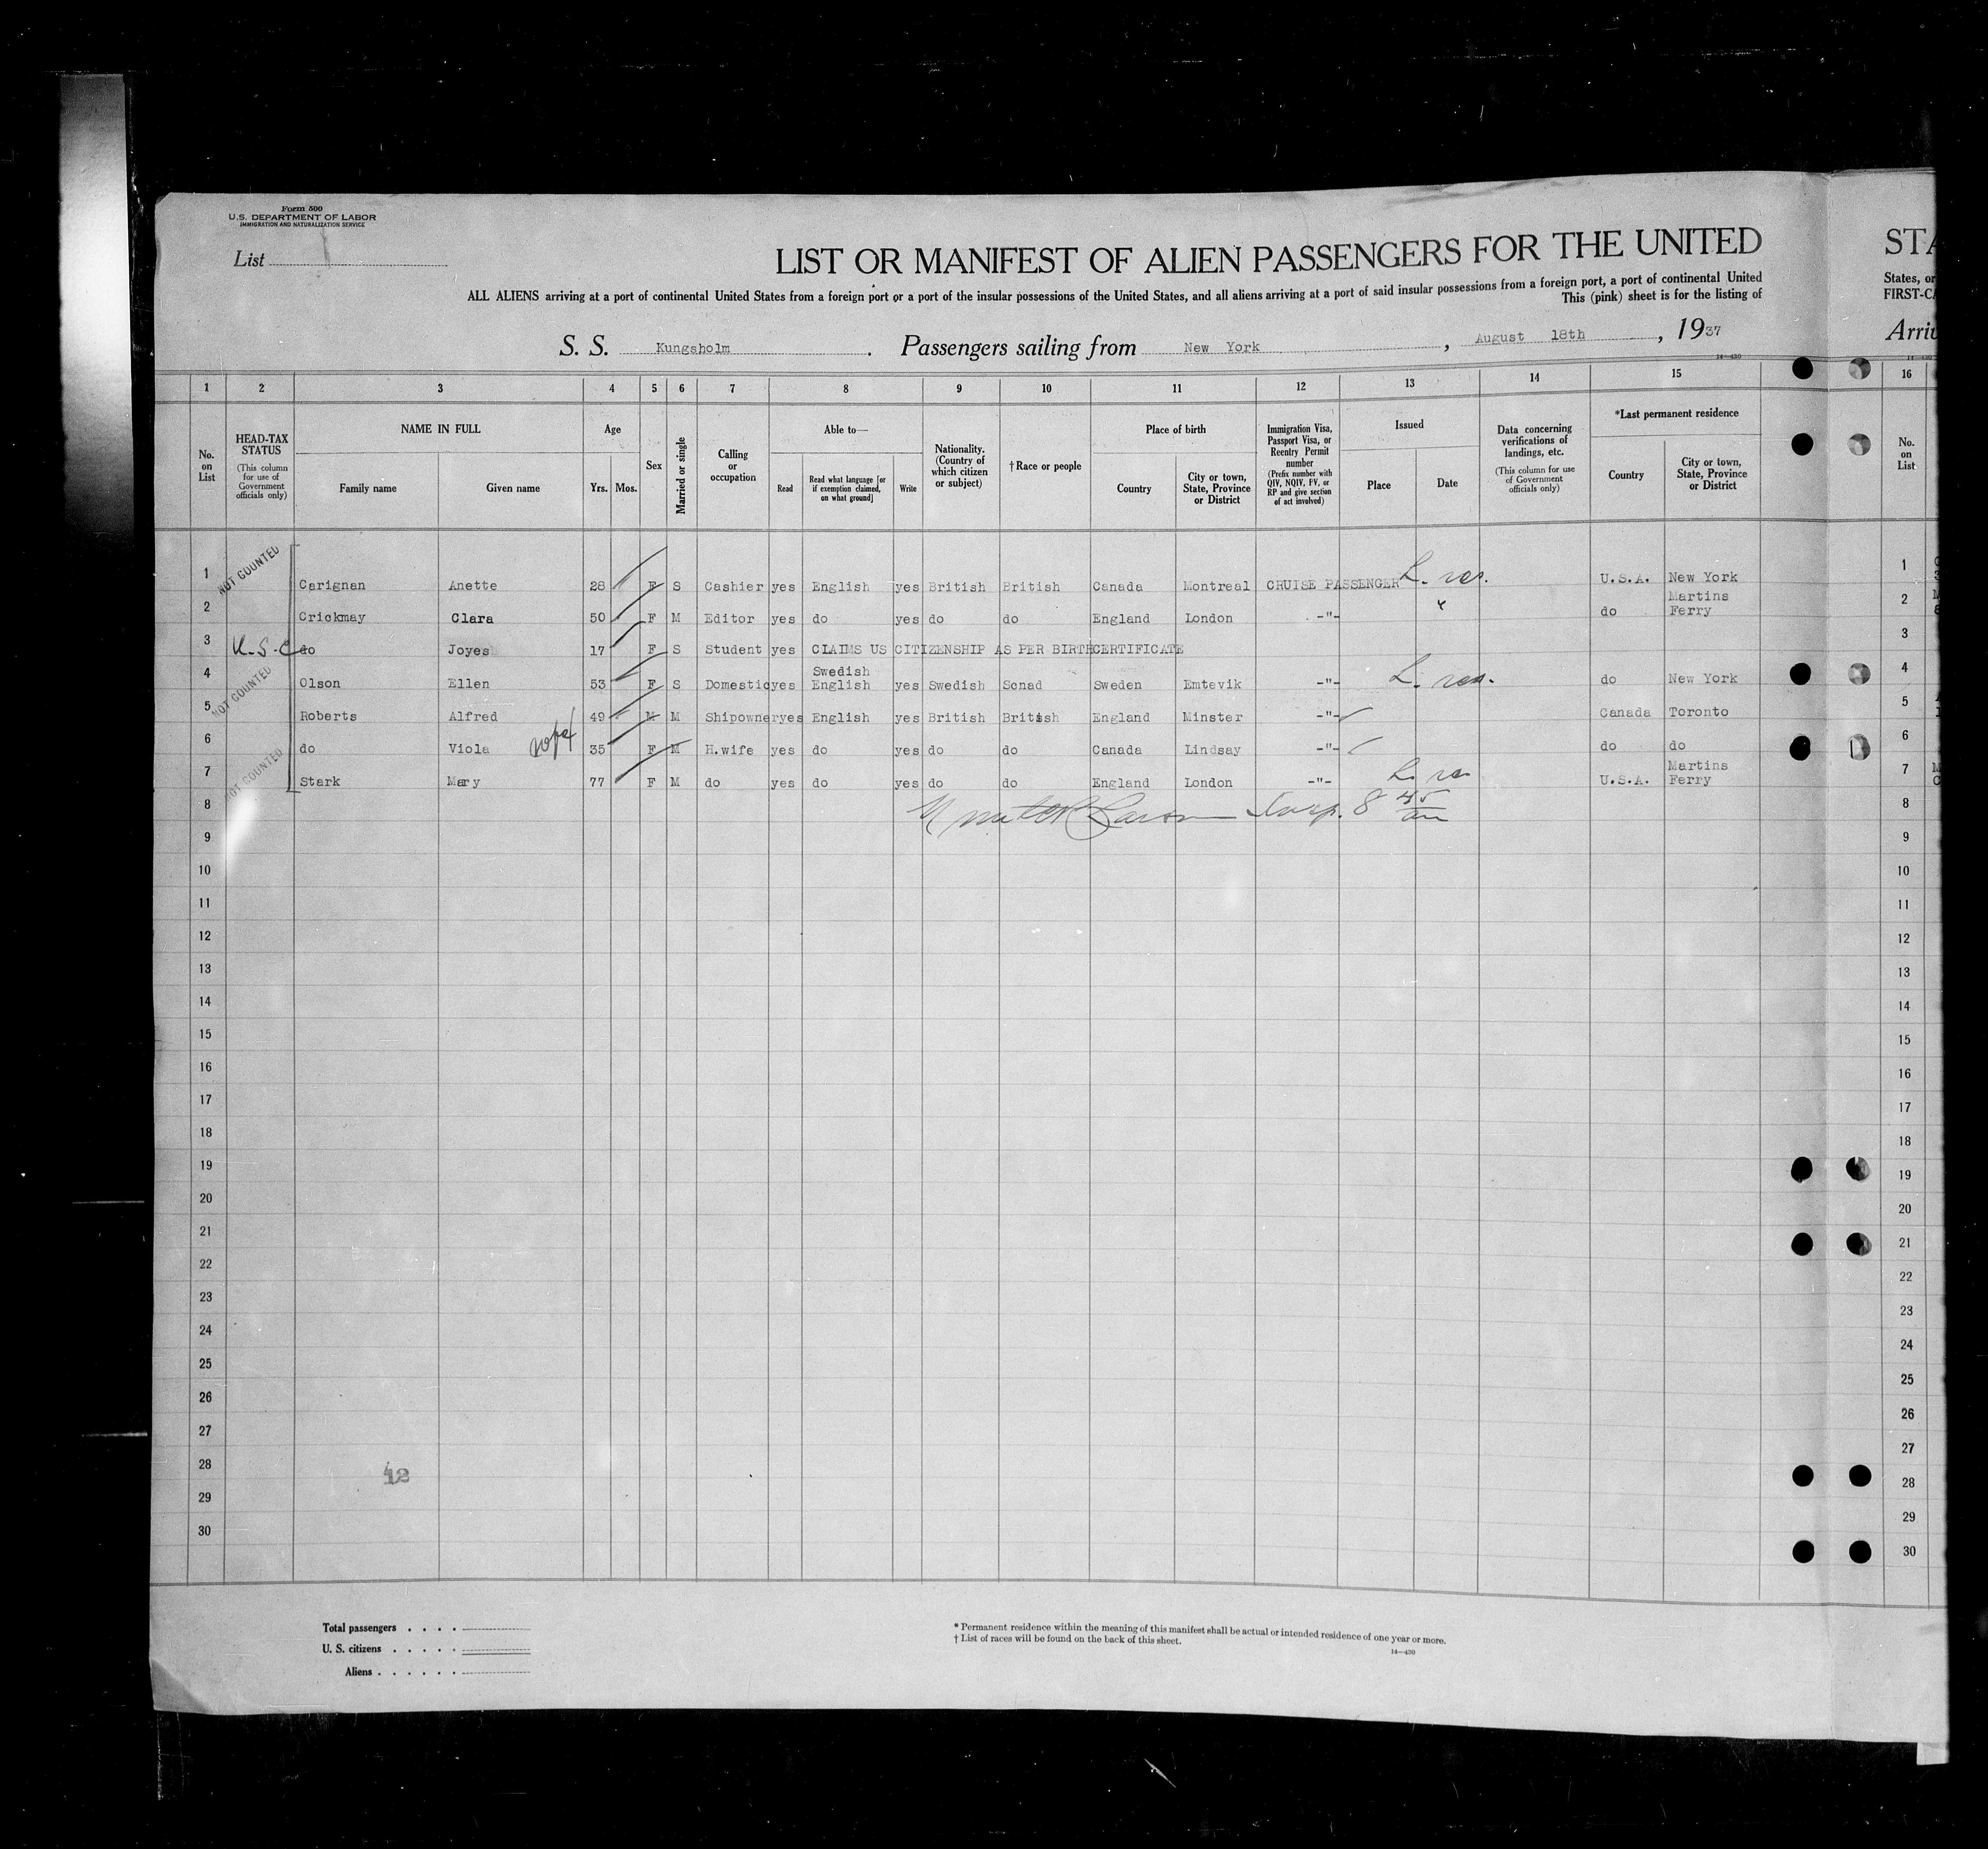 Form 500
U.S. DEPARTMENT OF LABOR
IMMIGRATION AND NATURALIZATION SERVICE
List
LIST OR MANIFEST OF ALIEN PASSENGERS FOR THE UNITED
STA
ALL ALIENS arriving at a port of continental United States from a foreign port or a port of the insular possessions of the United States, and all aliens arriving at a port of said insular possessions from a foreign port, a port of continental United
States, or
This (pink) sheet is for the listing of
FIRST-CA
S. S. Kungsholm. Passengers sailing from New York, August 18th, 1937
Arriv
14—430
1 2 3 4 5 6 7 8 9 10 11 12 13 14 15 16
No. on List
HEAD-TAX STATUS (This column for use of Government officials only)
NAME IN FULL
Family name Given name
Age
Yrs. Mos.
Sex
Married or single
Calling or occupation
Able to—
Read
Read what language [or if exemption claimed, on what ground]
Write
Nationality. (Country of which citizen or subject)
†Race or people
Place of birth
Country
City or town, State, Province or District
Immigration Visa, Passport Visa, or Reentry Permit number (Prefix number with QIV, NQIV, FV, or RP and give section of act involved)
Issued
Place Date
Data concerning verifications of landings, etc. (This column for use of Government officials only)
*Last permanent residence
Country
City or town, State, Province or District
No. on List
1 NOT COUNTED Carignan Anette 28 F S Cashier yes English yes British British Canada Montreal CRUISE PASSENGER L. res. U.S.A. New York 1
2 Crickmay Clara 50 F M Editor yes do yes do do England London -"- " do Martins Ferry 2
3 U-S-C do Joyes 17 F S Student yes CLAIMS US CITIZENSHIP AS PER BIRTHCERTIFICATE 3
4 NOT COUNTED Olson Ellen 53 F S Domestic yes Swedish English yes Swedish Scnad Sweden Emtevik -"- L. res. do New York 4
5 Roberts Alfred 49 M M Shipowner yes English yes British British England Minster -"- Canada Toronto 5
6 do Viola 35 F M H.wife yes do yes do do Canada Lindsay -"- do do 6
7 NOT COUNTED Stark Mary 77 F M do yes do yes do do England London -"- L. res U.S.A. Martins Ferry 7
8 Insp. 8 45 am 8
9 9
10 10
11 11
12 12
13 13
14 14
15 15
16 16
17 17
18 18
19 19
20 20
21 21
22 22
23 23
24 24
25 25
26 26
27 27
28 12 28
29 29
30 30
Total passengers
U. S. citizens
Aliens
* Permanent residence within the meaning of this manifest shall be actual or intended residence of one year or more.
† List of races will be found on the back of this sheet.
14—430